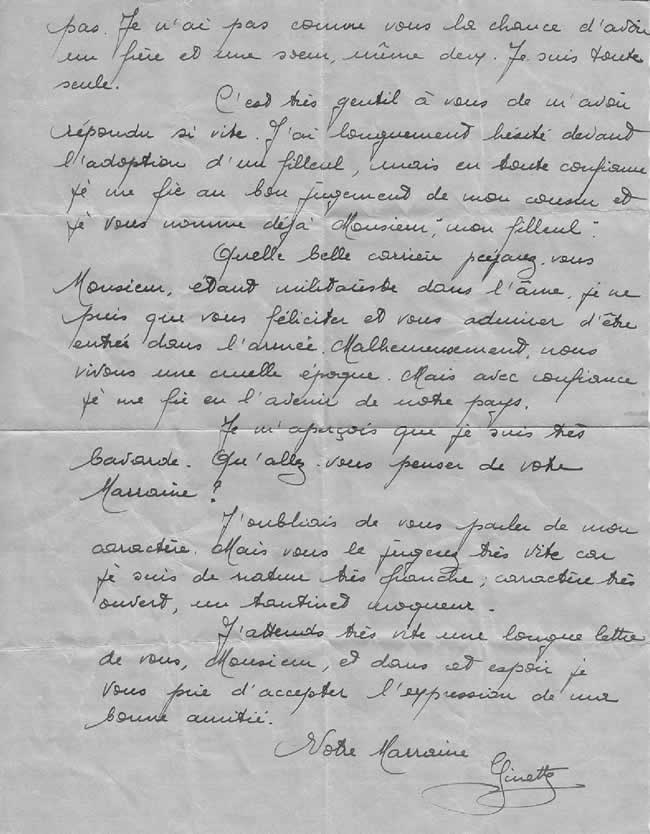 pas. Je n'ai pas comme vous la chance d'avoir
un frère et une soeur, même deux. Je suis toute
seule.
C'est très gentil à vous de m'avoir
répondu si vite. J'ai longuement hésité devant
l'adoption d'un filleul, mais en toute confiance
je me fie au bon jugement de mon cousin et
je vous nomme déjà Monsieur, "mon filleul".
Quelle belle carrière préparez-vous
Monsieur, étant militariste dans l'âme, je ne
puis que vous féliciter et vous admirer d'être
entré dans l'armée. Malheureusement, nous
vivons une cruelle époque. Mais avec confiance
je me fie en l'avenir de notre pays.
Je m'aperçois que je suis très
bavarde. Qu'allez-vous penser de votre
Marraine ?
J'oubliais de vous parler de mon
caractère. Mais vous le jugerez très vite car
je suis de nature très franche ; caractère très
ouvert, un tantinet moqueur.
J'attends très vite une longue lettre
de vous, Monsieur, et dans cet espoir je
vous prie d'accepter l'expression de ma
bonne amitié.
Votre Marraine
Ginette